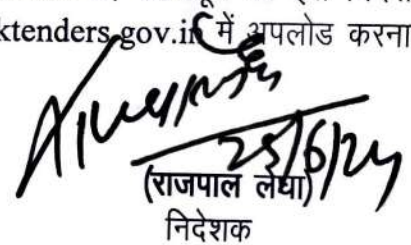 ktenders.gov.in में अपलोड करना
25/6/24
(राजपाल लेघा)
निदेशक